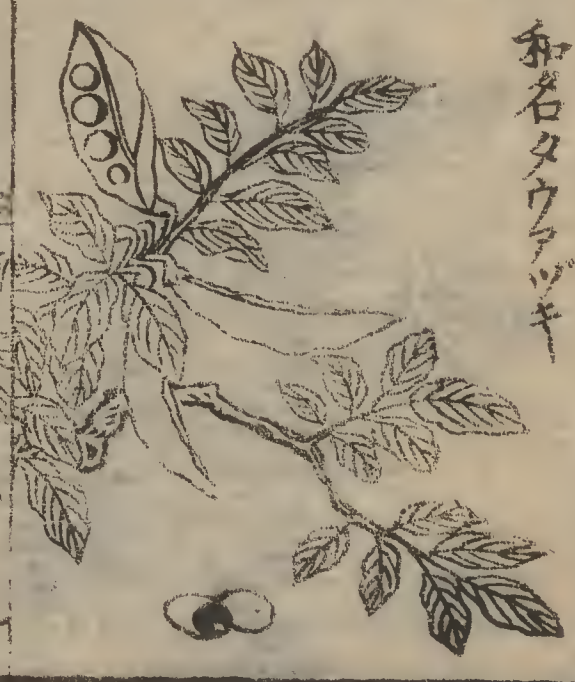 和名タウアヅキ